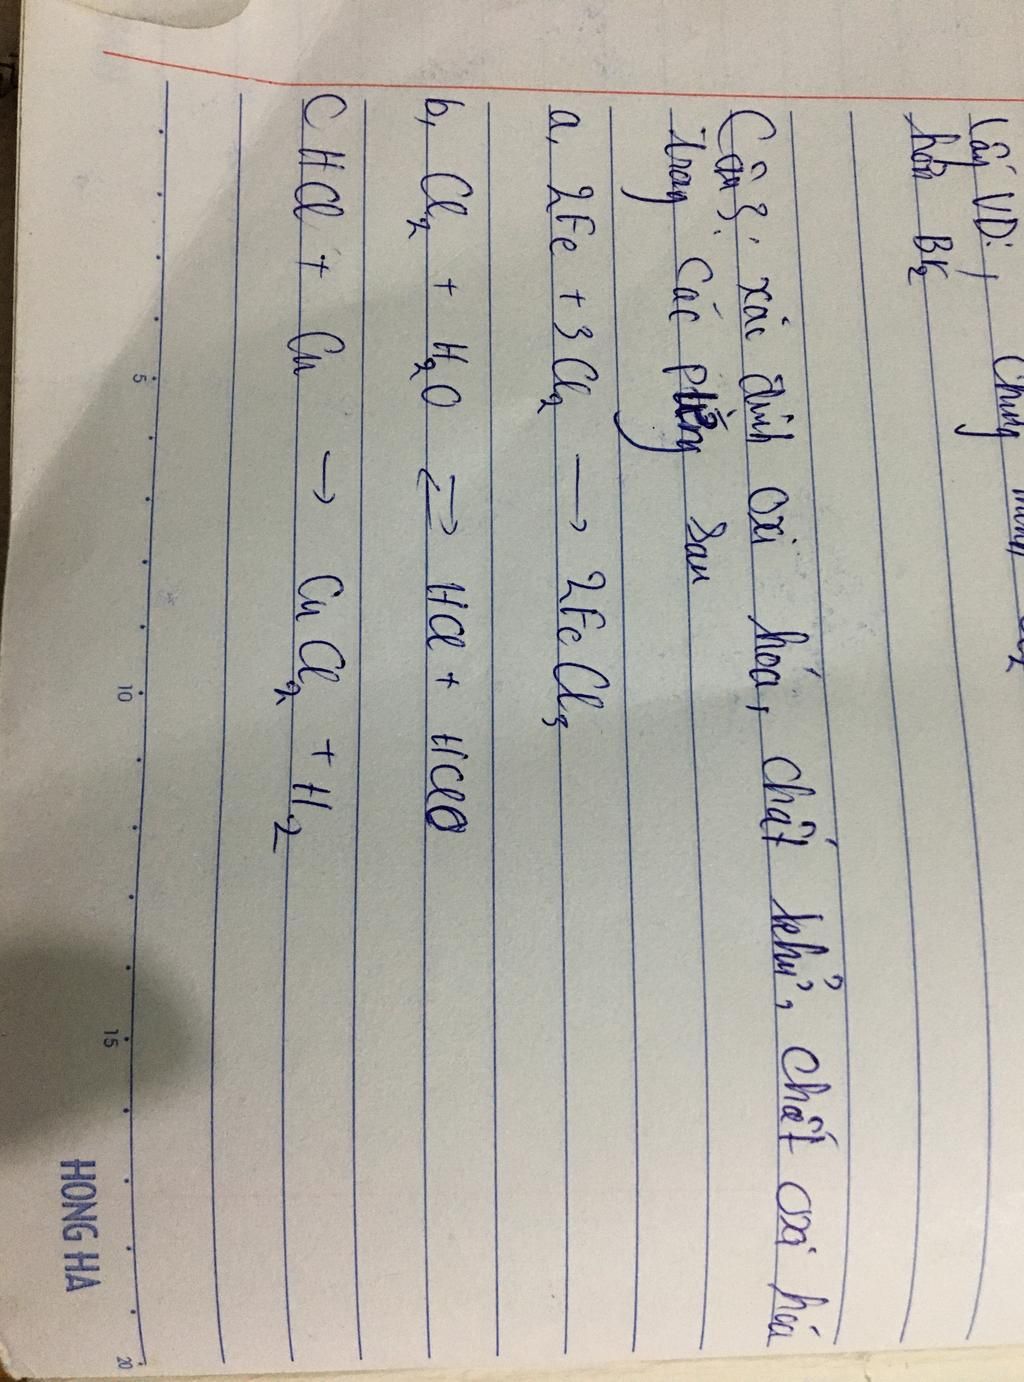 Lấy VD: Chứng minh Cl2
hơn Br2
Câu 3: xác định oxi hóa, chất khử, chất oxi hóa
trong các pứng sau
a, 2Fe + 3Cl2 → 2FeCl3
b, Cl2 + H2O ⇌ HCl + HClO
C HCl + Cu → CuCl2 + H2
5 10 15 20
HONG HA